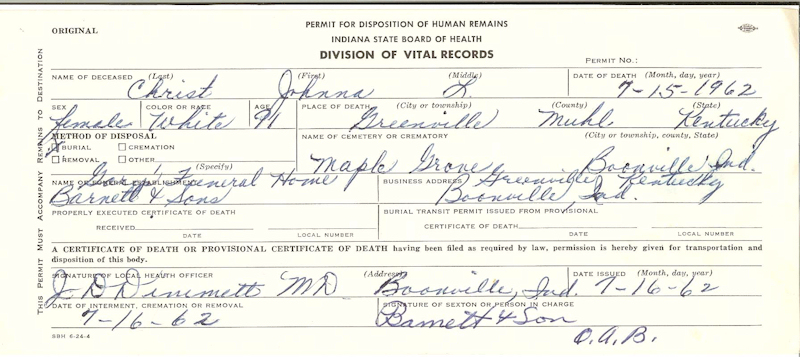 ORIGINAL
PERMIT FOR DISPOSITION OF HUMAN REMAINS
INDIANA STATE BOARD OF HEALTH
DIVISION OF VITAL RECORDS
PERMIT NO.:
THIS PERMIT MUST ACCOMPANY REMAINS TO DESTINATION
NAME OF DECEASED (Last) (First) (Middle) DATE OF DEATH (Month, day, year)
Christ Johnna K. 7-15-1962
SEX COLOR OR RACE AGE PLACE OF DEATH (City or township) (County) (State)
female White 91 Greenville Muhl. Kentucky
METHOD OF DISPOSAL NAME OF CEMETERY OR CREMATORY (City or township, county, State)
BURIAL CREMATION
REMOVAL OTHER
(Specify) Maple Grove Boonville Ind.
Funeral Home BUSINESS ADDRESS Greenville, Kentucky
Barnett & Sons Boonville, Ind.
PROPERLY EXECUTED CERTIFICATE OF DEATH BURIAL TRANSIT PERMIT ISSUED FROM PROVISIONAL
RECEIVED CERTIFICATE OF DEATH
DATE LOCAL NUMBER DATE LOCAL NUMBER
A CERTIFICATE OF DEATH OR PROVISIONAL CERTIFICATE OF DEATH having been filed as required by law, permission is hereby given for transportation and
disposition of this body.
SIGNATURE OF LOCAL HEALTH OFFICER (Address) DATE ISSUED (Month, day, year)
J D Dimmett MD Boonville, Ind. 7-16-62
DATE OF INTERMENT, CREMATION OR REMOVAL SIGNATURE OF SEXTON OR PERSON IN CHARGE
7-16-62 Barnett & Son
O.A.B.
SBH 6-24-4